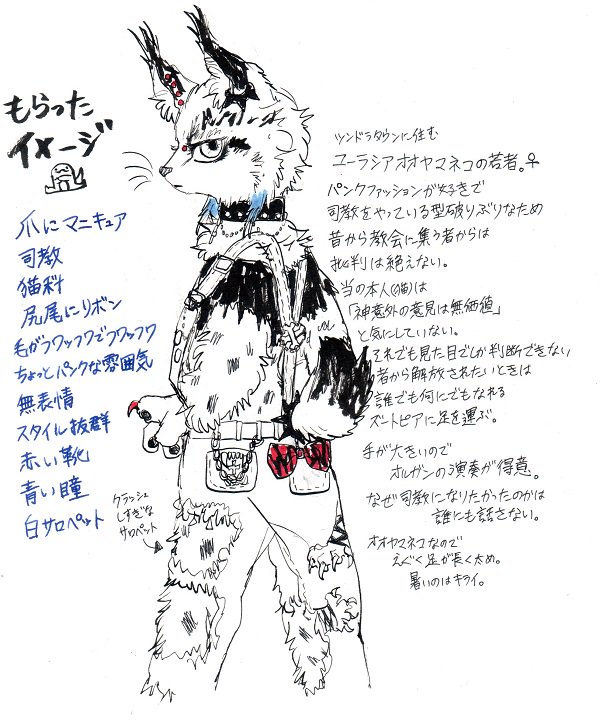 もらった
イメージ
爪にマニキュア
司教
猫科
尻尾にリボン
毛がフワッフワでフワッフワ
ちょっとパンクな雰囲気
無表情
スタイル抜群
赤い靴
青い瞳
白サロペット
クラッシュ
しすぎな
サロペット
ツンドラタウンに住む
ユーラシアオオヤマネコの若者。♀
パンクファッションが好きで
司教をやっている型破りぶりなため
昔から教会に集う者からは
批判は絶えない。
当の本人(猫)は
「神意外の意見は無価値」
と気にしていない。
それでも見た目でしか判断できない
者から解放されたいときは
誰でも何にでもなれる
ズートピアに足を運ぶ。
手が大きいので
オルガンの演奏が得意。
なぜ司教になりたかったのかは
誰にも話さない。
オオヤマネコなので
えぐく足が長く太め。
暑いのはキライ。